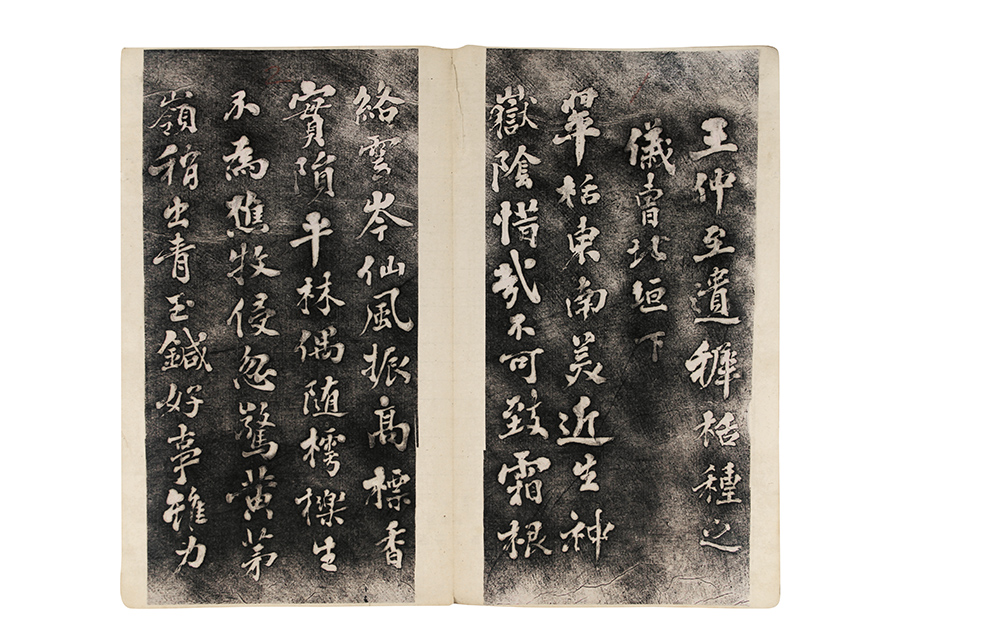 王仲至遺穉栝種之
儀曹北垣下
翠栝東南美近生神
嶽陰惜哉不可致霜根
絡雲岑仙風振高標香
實隕平林偶随樗櫟生
不為樵牧侵忽驚黃茅
嶺稍出青玉鍼好事雖力